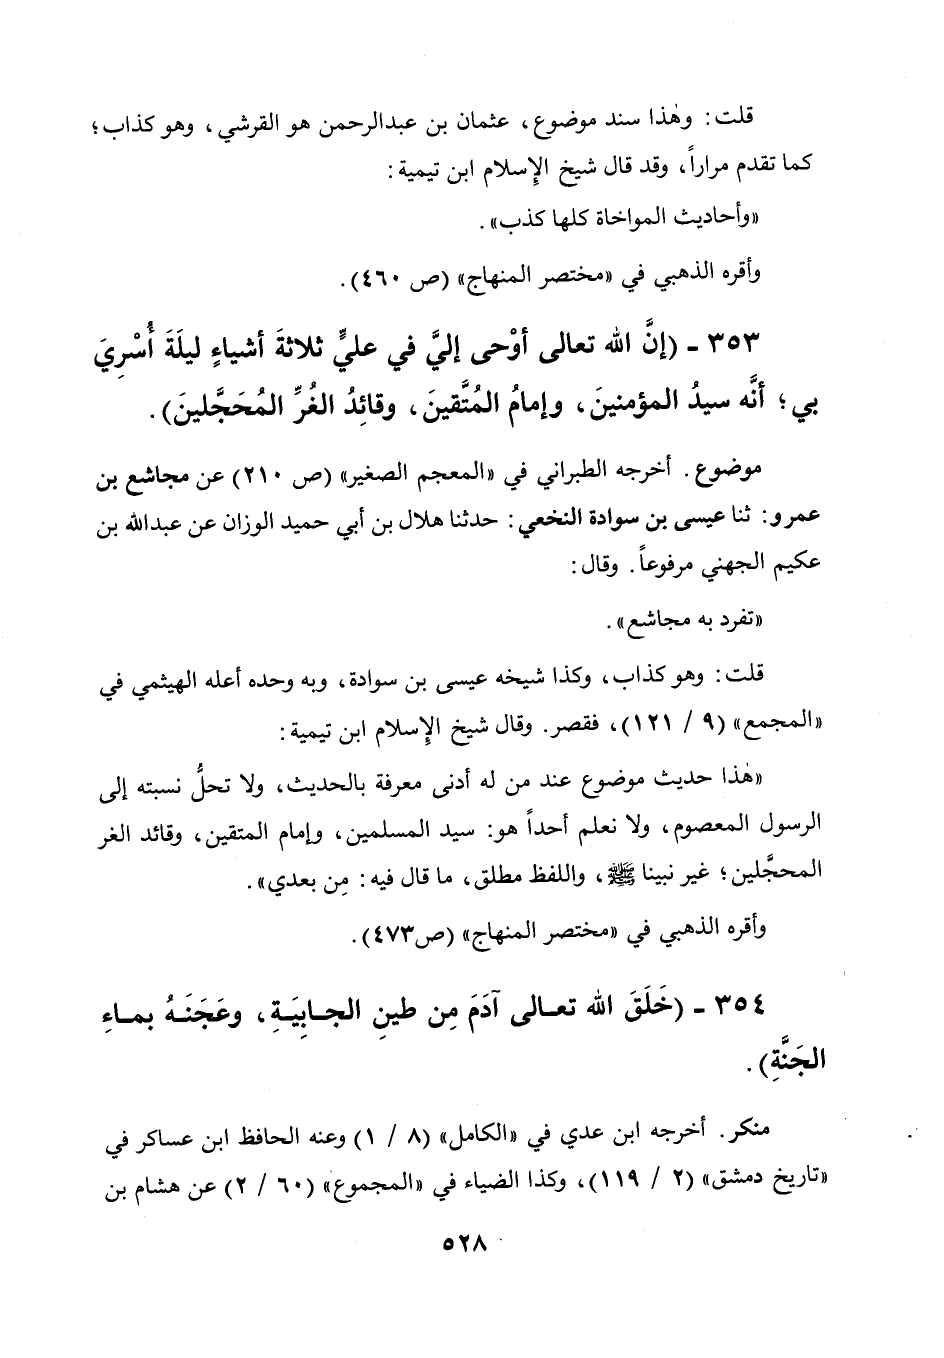 قلت: وهٰذا سند موضوع، عثمان بن عبدالرحمن هو القرشي، وهو كذاب؛
كما تقدم مراراً، وقد قال شيخ الإِسلام ابن تيمية:
«وأحاديث المواخاة كلها كذب».
وأقره الذهبي في «مختصر المنهاج» (ص ٤٦٠).
٣٥٣ ـ (إنَّ الله تعالى أوْحى إليَّ في عليٍّ ثلاثةَ أشياءٍ ليلَةَ أُسْرِيَ
بي؛ أنَّه سيدُ المؤمنينَ، وإمامُ المُتَّقينَ، وقائِدُ الغُرِّ المُحَجَّلينَ).
موضوع. أخرجه الطبراني في «المعجم الصغير» (ص ٢١٠) عن مجاشع بن
عمرو: ثنا عيسى بن سوادة النخعي: حدثنا هلال بن أبي حميد الوزان عن عبدالله بن
عكيم الجهني مرفوعاً. وقال:
«تفرد به مجاشع».
قلت: وهو كذاب، وكذا شيخه عيسى بن سوادة، وبه وحده أعله الهيثمي في
«المجمع» (٩ / ١٢١)، فقصر. وقال شيخ الإِسلام ابن تيمية:
«هٰذا حديث موضوع عند من له أدنى معرفة بالحديث، ولا تحلُّ نسبته إلى
الرسول المعصوم، ولا نعلم أحداً هو: سيد المسلمين، وإمام المتقين، وقائد الغر
المحجَّلين؛ غير نبينا ﷺ، واللفظ مطلق، ما قال فيه: مِن بعدي».
وأقره الذهبي في «مختصر المنهاج» (ص٤٧٣).
٣٥٤ ـ (خَلَقَ الله تعـالى آدَمَ مِن طينِ الجـابِيَـةِ، وعَجَنَـهُ بمـاءِ
الجَنَّةِ).
منكر. أخرجه ابن عدي في «الكامل» (٨ / ١) وعنه الحافظ ابن عساكر في
«تاريخ دمشق» (٢ / ١١٩)، وكذا الضياء في «المجموع» (٦٠ / ٢) عن هشام بن
٥٢٨